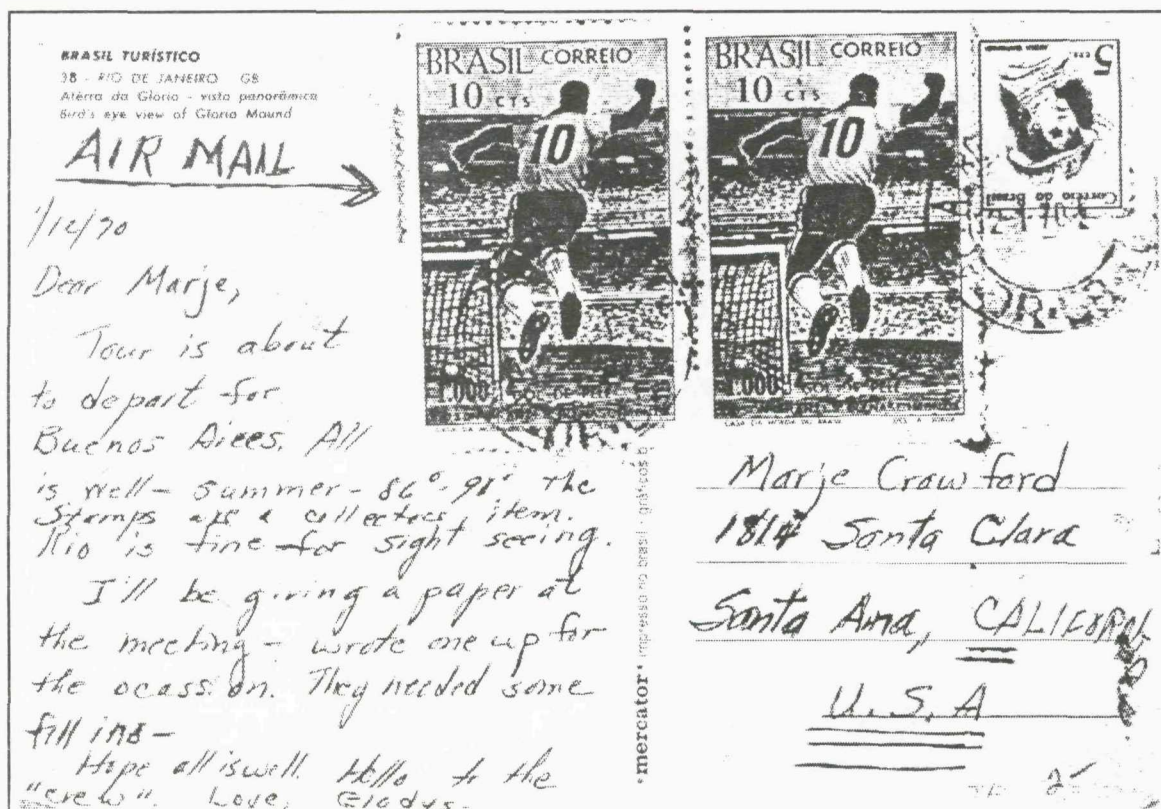 BRASIL TURÍSTICO
38 - RIO DE JANEIRO GB
Atêrro da Gloria - vista panorâmica
Bird's eye view of Gloria Mound
AIR MAIL
1/12/70
Dear Marje,
Tour is about
to depart for
Buenos Aires. All
is well - Summer - 86°-98° The
Stamps are a collectors item.
Rio is fine for sight seeing.
I'll be giving a paper at
the meeting - wrote one up for
the ocassion. They needed some
fill ins -
Hope all is well. Hello to the
"crew". Love, Gladys.
BRASIL CORREIO
10 CTS
10
1.000
CASA DA MOEDA DO BRASIL
BRASIL CORREIO
10 CTS
10
1.000
CASA DA MOEDA DO BRASIL
5
Correio do Brasil
"mercator" impresso no brasil - gráficos b
Marje Crawford
1814 Santa Clara
Santa Ana, CALIFORN
U.S.A